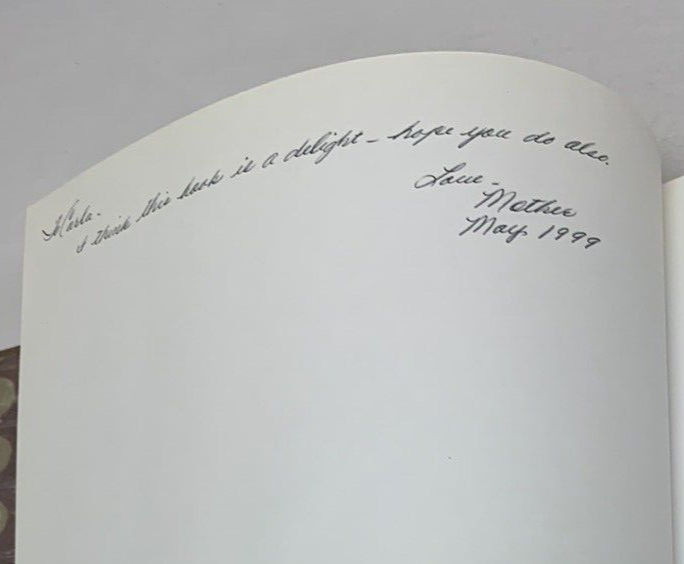 Karla-
I think this book is a delight - hope you do also.
Love -
Mother
May 1999